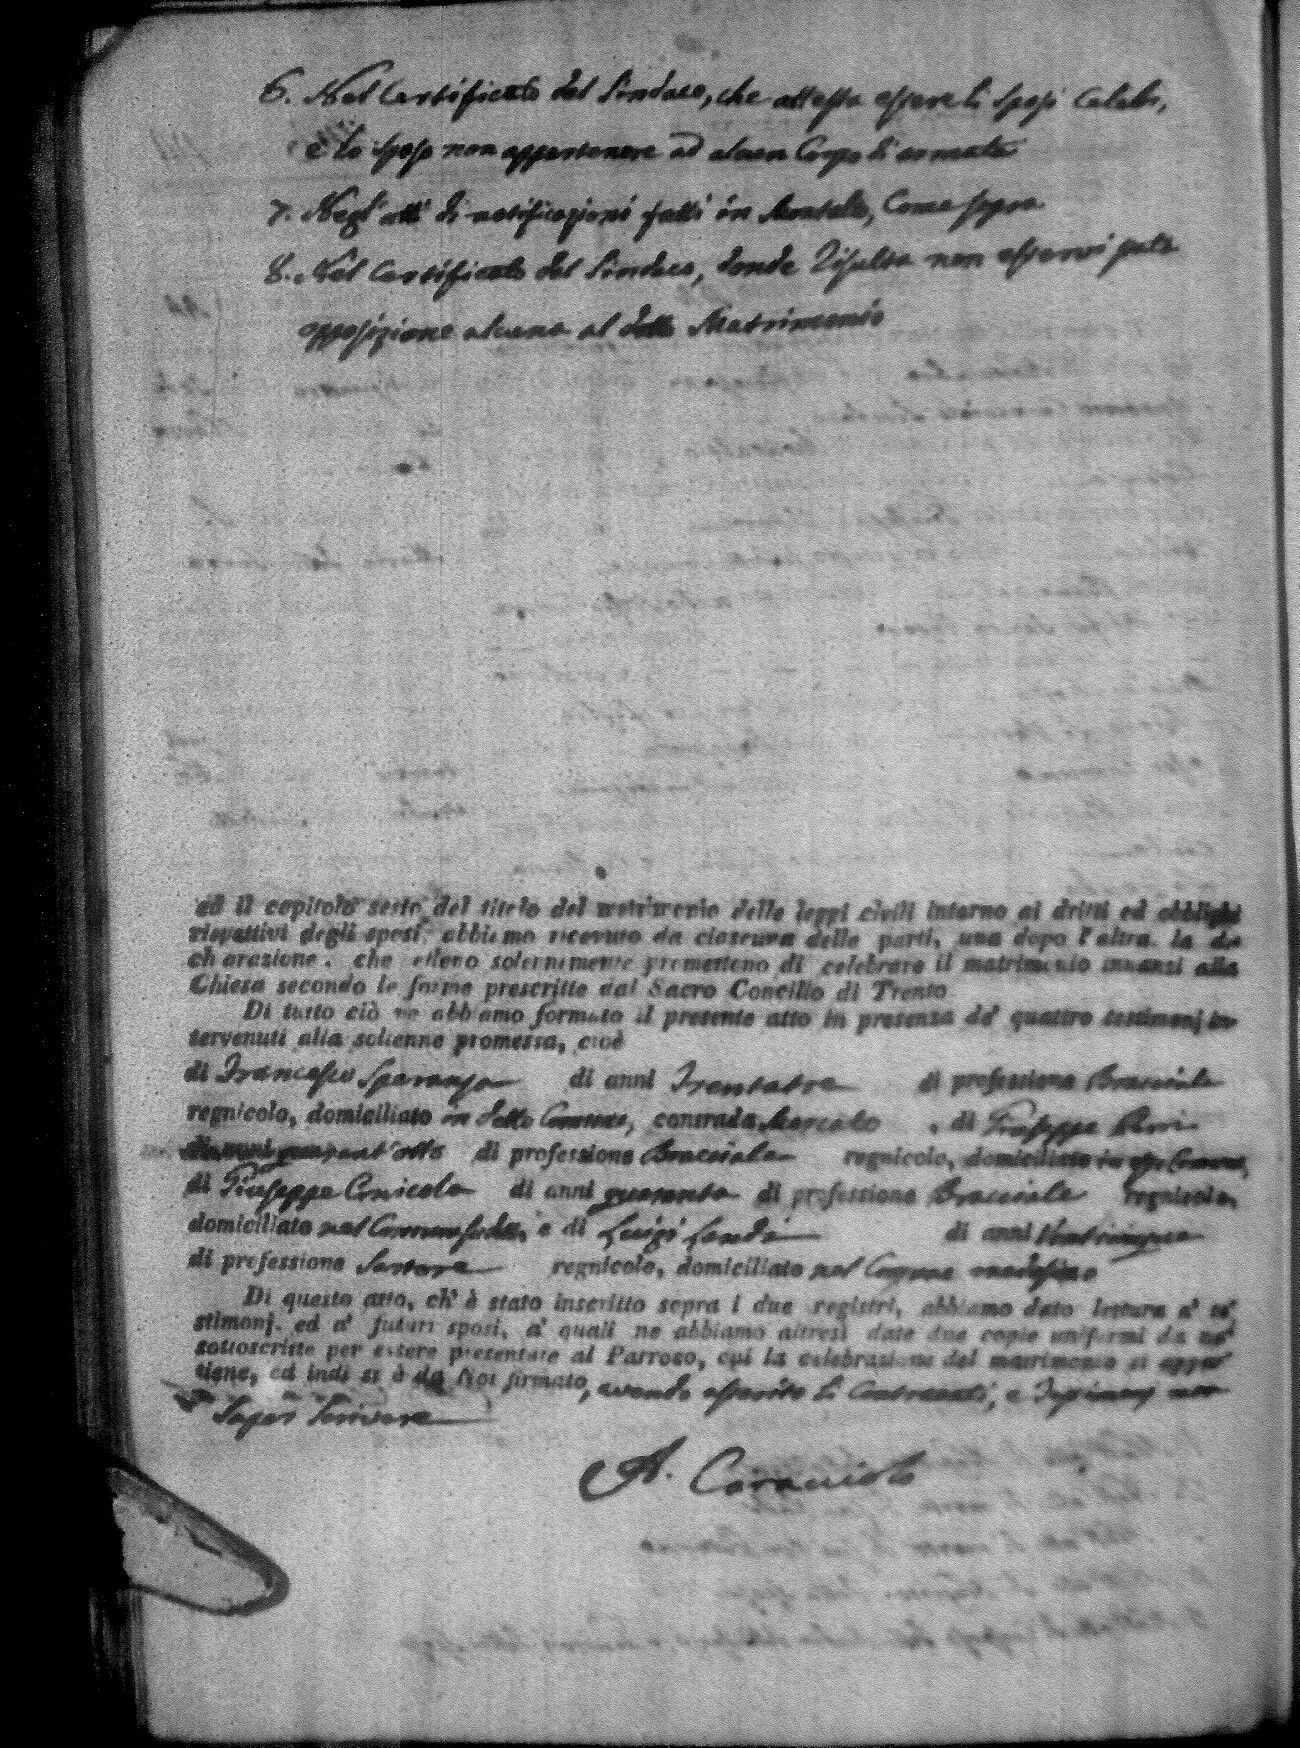 6. Nel Certificato del Sindaco, che attesta essere li sposi Celebi,
e lo sposo non appartenere ad alcun Corpo di armata
7. Negl'atti di notificazioni fatti in Montalto, Come sopra.
8. Nel Certificato del Sindaco, donde risulta non esservi fatta
opposizione alcuna al detto Matrimonio
ed il capitolo sesto del titolo del matrimonio delle leggi civili intorno ai dritti ed obblighi
rispettivi degli sposi, abbiamo ricevuto da ciascuna delle parti, una dopo l'altra la di-
chiarazione, che elleno solennemente promettono di celebrare il matrimonio innanzi alla
Chiesa secondo le forme prescritte dal Sacro Concilio di Trento
Di tutto ciò ne abbiamo formato il presente atto in presenza de' quattro testimonj in-
tervenuti alla solenne promessa, cioè
di Francesco Speranza di anni Trentatre di professione Bracciale
regnicolo, domiciliato in detto Comune, contrada Mercato , di Giuseppe
di anni quarant'otto di professione Bracciale regnicolo, domiciliato in Comune,
di Giuseppe Conicola di anni quaranta di professione Bracciale regnicolo,
domiciliato nel Comune sudto, e di Luigi Landi di anni Venticinque
di professione Sartore regnicolo, domiciliato nel Comune medesimo
Di questo atto, ch' è stato inscritto sopra i due registri, abbiamo dato lettura a' te-
stimonj, ed a' futuri sposi, a' quali ne abbiamo altresì date due copie uniformi da noi
sottoscritte per essere presentate al Parroco, cui la celebrazione del matrimonio si appar-
tiene, ed indi si è da Noi firmato, avendo asserito li Contraenti, e Testimonj non
Saper Scrivere
A. Caracciolo